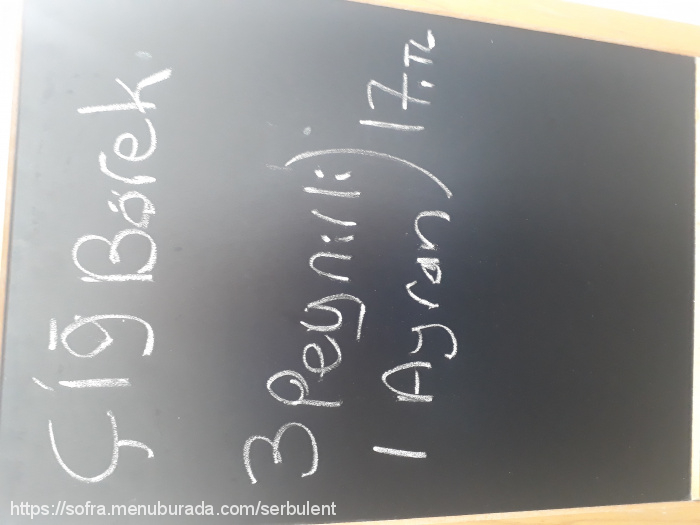 Çiğ Börek.
3 Peynirli) 17.TL
1 Ayran
https://sofra.menuburada.com/serbulent